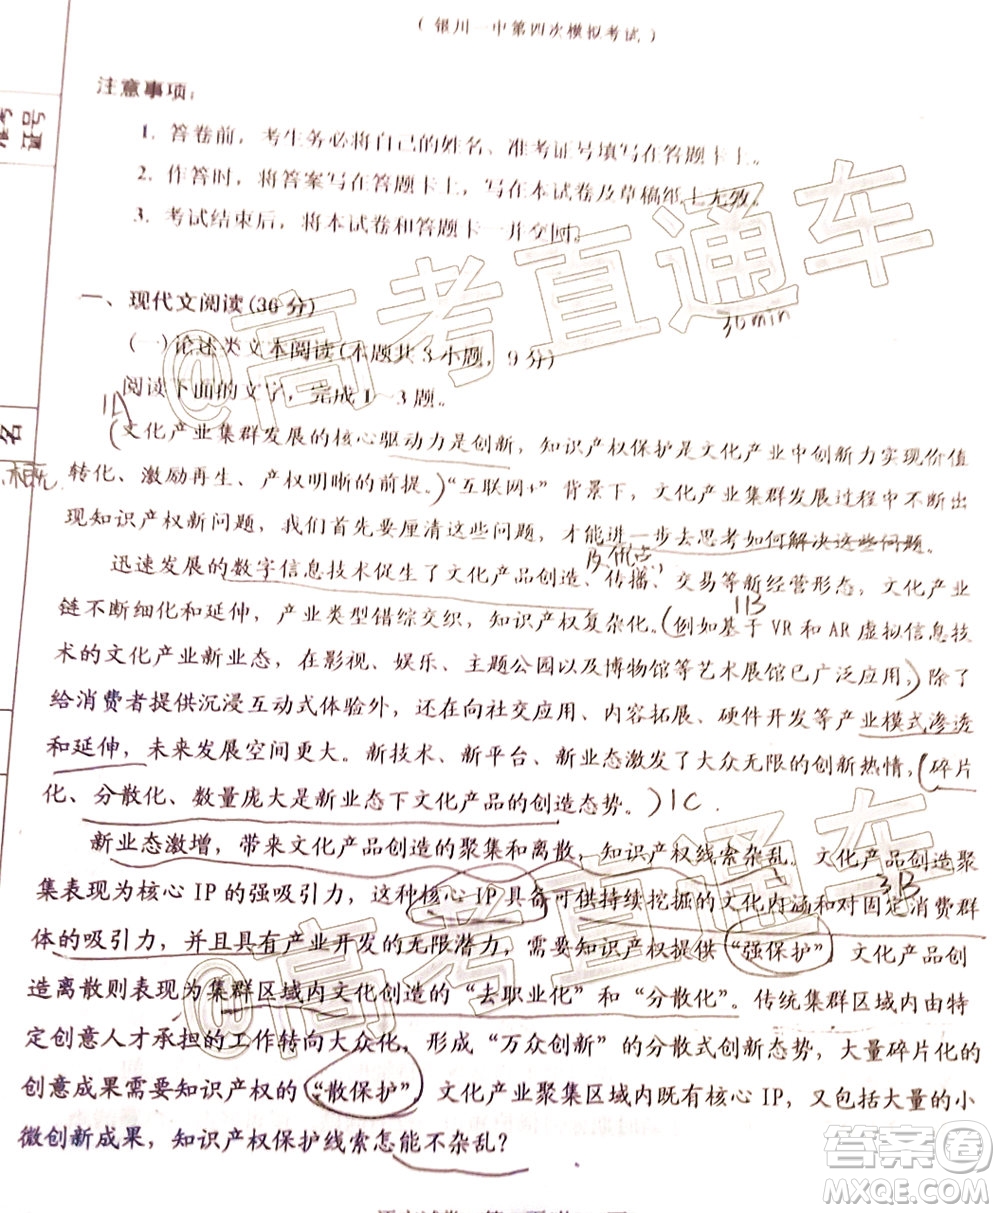 (银川一中第四次模拟考试)
注意事项:
1. 答卷前,考生务必将自己的姓名、准考证号填写在答题卡上。
2. 作答时,将答案写在答题卡上,写在本试卷及草稿纸上无效。
3. 考试结束后,将本试卷和答题卡一并交回。
一、现代文阅读(36分)
30min
(一)论述类文本阅读(本题共3小题,9分)
阅读下面的文字,完成1~3题。
1A
文化产业集群发展的核心驱动力是创新,知识产权保护是文化产业中创新力实现价值
转化、激励再生、产权明晰的前提。“互联网+”背景下,文化产业集群发展过程中不断出
现知识产权新问题,我们首先要厘清这些问题,才能进一步去思考如何解决这些问题。
迅速发展的数字信息技术促生了文化产品创造、传播、交易等新经营形态,文化产业
链不断细化和延伸,产业类型错综交织,知识产权复杂化。(例如基于 VR 和 AR 虚拟信息技
1B
术的文化产业新业态,在影视、娱乐、主题公园以及博物馆等艺术展馆已广泛应用,)除了
给消费者提供沉浸互动式体验外,还在向社交应用、内容拓展、硬件开发等产业模式渗透
和延伸,未来发展空间更大。新技术、新平台、新业态激发了大众无限的创新热情,(碎片
化、分散化、数量庞大是新业态下文化产品的创造态势。)1C
新业态激增,带来文化产品创造的聚集和离散,知识产权线索杂乱。文化产品创造聚
3B
集表现为核心 IP 的强吸引力,这种核心 IP 具备可供持续挖掘的文化内涵和对固定消费群
体的吸引力,并且具有产业开发的无限潜力,需要知识产权提供“强保护”,文化产品创
造离散则表现为集群区域内文化创造的“去职业化”和“分散化”。传统集群区域内由特
定创意人才承担的工作转向大众化,形成“万众创新”的分散式创新态势,大量碎片化的
创意成果需要知识产权的“散保护”,文化产业聚集区域内既有核心 IP,又包括大量的小
微创新成果,知识产权保护线索怎能不杂乱?
@高考直通车
@高考直通车
答案卷
MXQE.COM